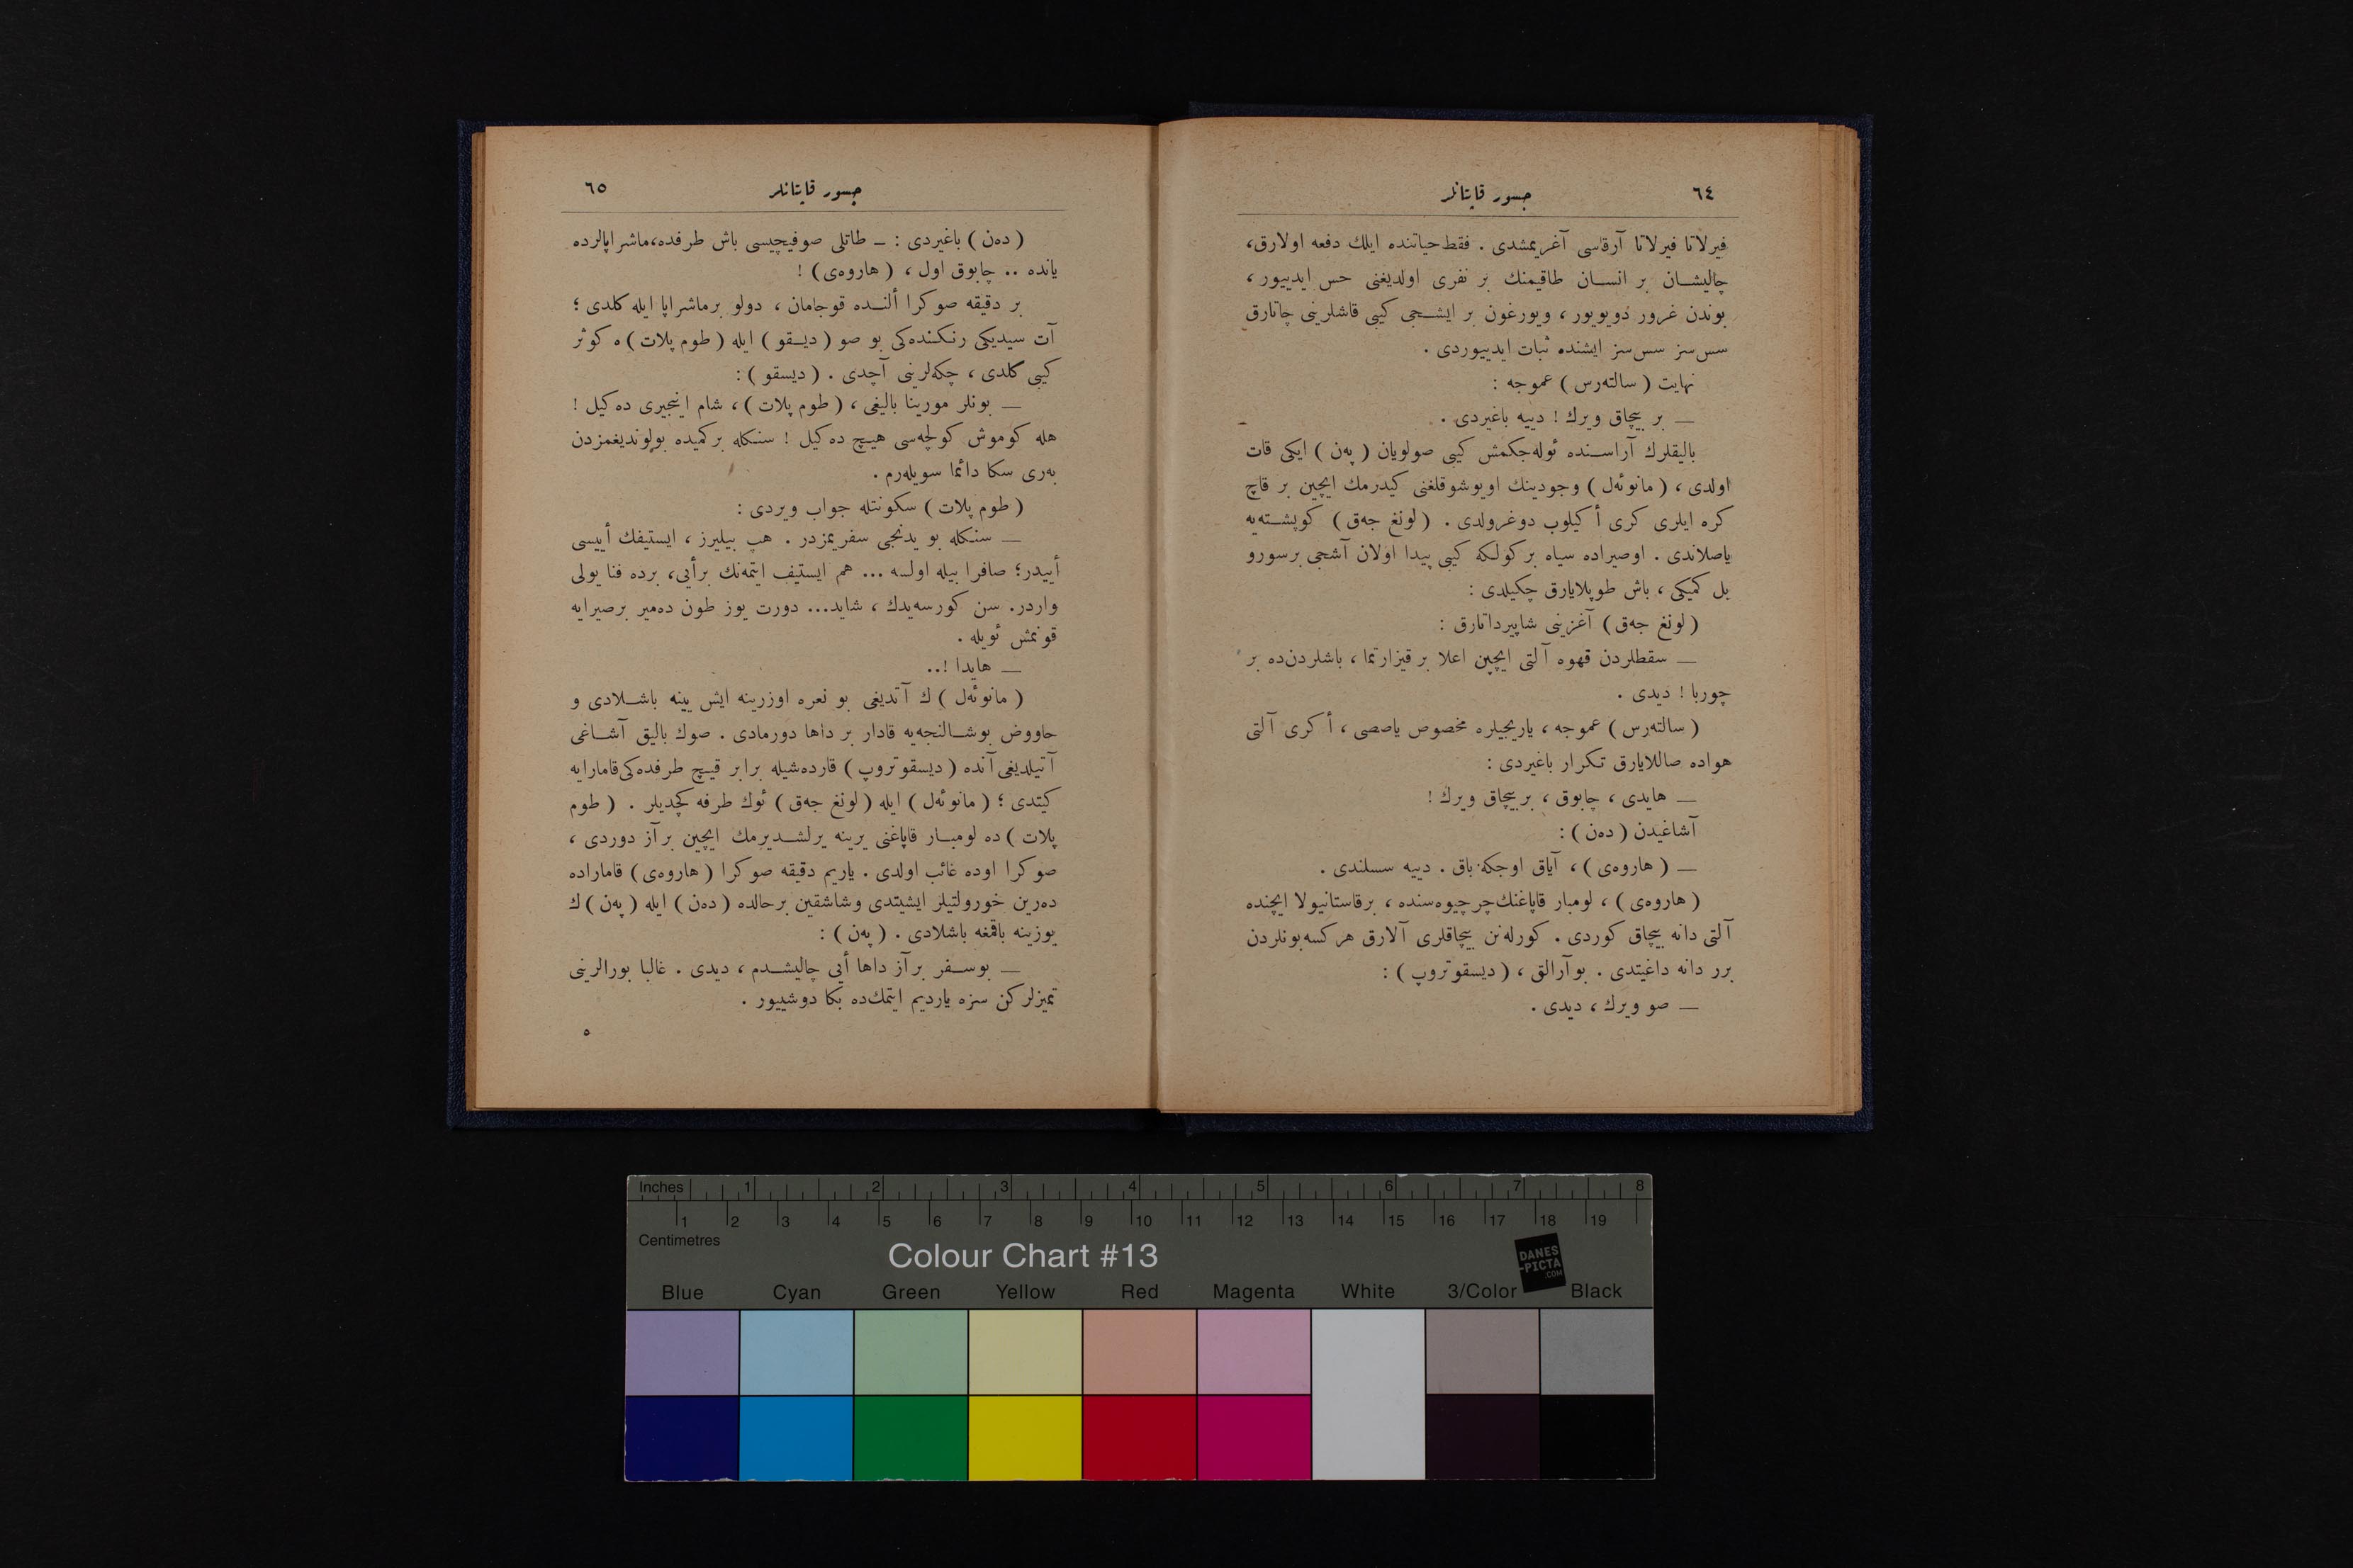 ٦٤
جسور قاپتانلر
فیرلاتا فیرلاتا آرقاسی آغریمشدی . فقط حیاتنده ایلك دفعه اولارق،
چالیشان بر انسان طاقیمنك بر نفری اولدیغنی حس ایدییور ،
بوندن غرور دویویور ، ویورغون بر ایشجی کیبی قاشلرینی چاتارق
سس سز سس سز ایشنده ثبات ایدییوردی .
نهایت ( سالته‌رس ) عموجه :
— بر بیچاق ویرك ! دییه باغیردی .
بالیقلرك آراسنده ئوله‌جکمش کیبی صولویان ( په‌ن ) ایکی قات
اولدی ، ( مانوئه‌ل ) وجودینك اویوشوقلغنی کیدرمك ایچین بر قاچ
کره ایلری کری أکیلوب دوغرولدی . ( لونغ جه‌ق ) کوپشته‌یه
یاصلاندی . اوصیراده سیاه بر کولکه کیبی پیدا اولان آشجی برسورو
بل کمیکی ، باش طوپلایارق چکیلدی :
( لونغ جه‌ق ) آغزینی شاپیرداتارق :
— سقطلردن قهوه آلتی ایچین اعلا بر قیزارتما ، باشلردن‌ده بر
چوربا ! دیدی .
( سالته‌رس ) عموجه ، یاریجیلره مخصوص یاصصی ، أکری آلتی
هواده صاللایارق تکرار باغیردی :
— هایدی ، چابوق ، بربیچاق ویرك !
آشاغیدن ( ده‌ن ) :
— ( هاروه‌ی ) ، آیاق اوجکه باق . دییه سسلندی .
( هاروه‌ی ) ، لومبار قاپاغنك‌چرچیوه‌سنده ، برقاستانیولا ایچنده
آلتی دانه بیچاق کوردی . کورله‌نن بیچاقلری آلارق هرکسه‌بونلردن
برر دانه داغیتدی . بوآرالق ، ( دیسقوتروپ ) :
— صو ویرك ، دیدی .
جسور قاپتانلر
٦٥
( ده‌ن ) باغیردی : ـ طاتلی صوفیچیسی باش طرفده،ماشراپالرده
یانده .. چابوق اول ، ( هاروه‌ی ) !
بر دقیقه صوکرا ألنده قوجامان ، دولو برماشراپا ایله کلدی ؛
آت سیدیکی رنکنده‌کی بو صو ( دیسقو ) ایله ( طوم پلات ) ه کوثر
کیبی کلدی ، چکه‌لرینی آچدی . ( دیسقو ) :
— بونلر مورینا بالیغی ، ( طوم پلات ) ، شام اینجیری ده‌کیل !
هله کوموش کولچه‌سی هیچ ده‌کیل ! سنکله برکمیده بولوندیغمزدن
به‌ری سکا دائما سویله‌رم .
( طوم پلات ) سکونتله جواب ویردی :
— سنکله بو یدنجی سفریمزدر . هپ بیلیرز ، ایستیفك أییسی
أییدر؛ صافرا بیله اولسه ... هم ایستیف ایتمه‌نك برأیی، برده فنا یولی
واردر. سن کورسه‌یدك ، شاید... دورت یوز طون ده‌میر برصیرایه
قونمش ئویله .
— هایدا !..
( مانوئه‌ل ) ك آتدیغی بو نعره اوزرینه ایش یینه باشلادی و
حاووض بوشالنجه‌یه قادار بر داها دورمادی . صوك بالیق آشاغی
آتیلدیغی آنده ( دیسقوتروپ ) قارده‌شیله برابر قیچ طرفده‌کی‌قامارایه
کیتدی ؛ ( مانوئه‌ل ) ایله ( لونغ جه‌ق ) ئوك طرفه کچدیلر . ( طوم
پلات ) ده لومبار قاپاغنی یرینه یرلشدیرمك ایچین برآز دوردی ،
صوکرا اوده غائب اولدی . یاریم دقیقه صوکرا ( هاروه‌ی ) قاماراده
ده‌رین خورولتیلر ایشیتدی وشاشقین برحالده ( ده‌ن ) ایله ( په‌ن ) ك
یوزینه باقمغه باشلادی . ( په‌ن ) :
— بوسفر برآز داها أیی چالیشدم ، دیدی . غالبا بورالرینی
تمیزلرکن سزه یاردیم ایتمك‌ده بکا دوشییور .
٥
Inches 1 2 3 4 5 6 7 8
1 2 3 4 5 6 7 8 9 10 11 12 13 14 15 16 17 18 19
Centimetres
Colour Chart #13
DANES
-PICTA
.COM
Blue Cyan Green Yellow Red Magenta White 3/Color Black